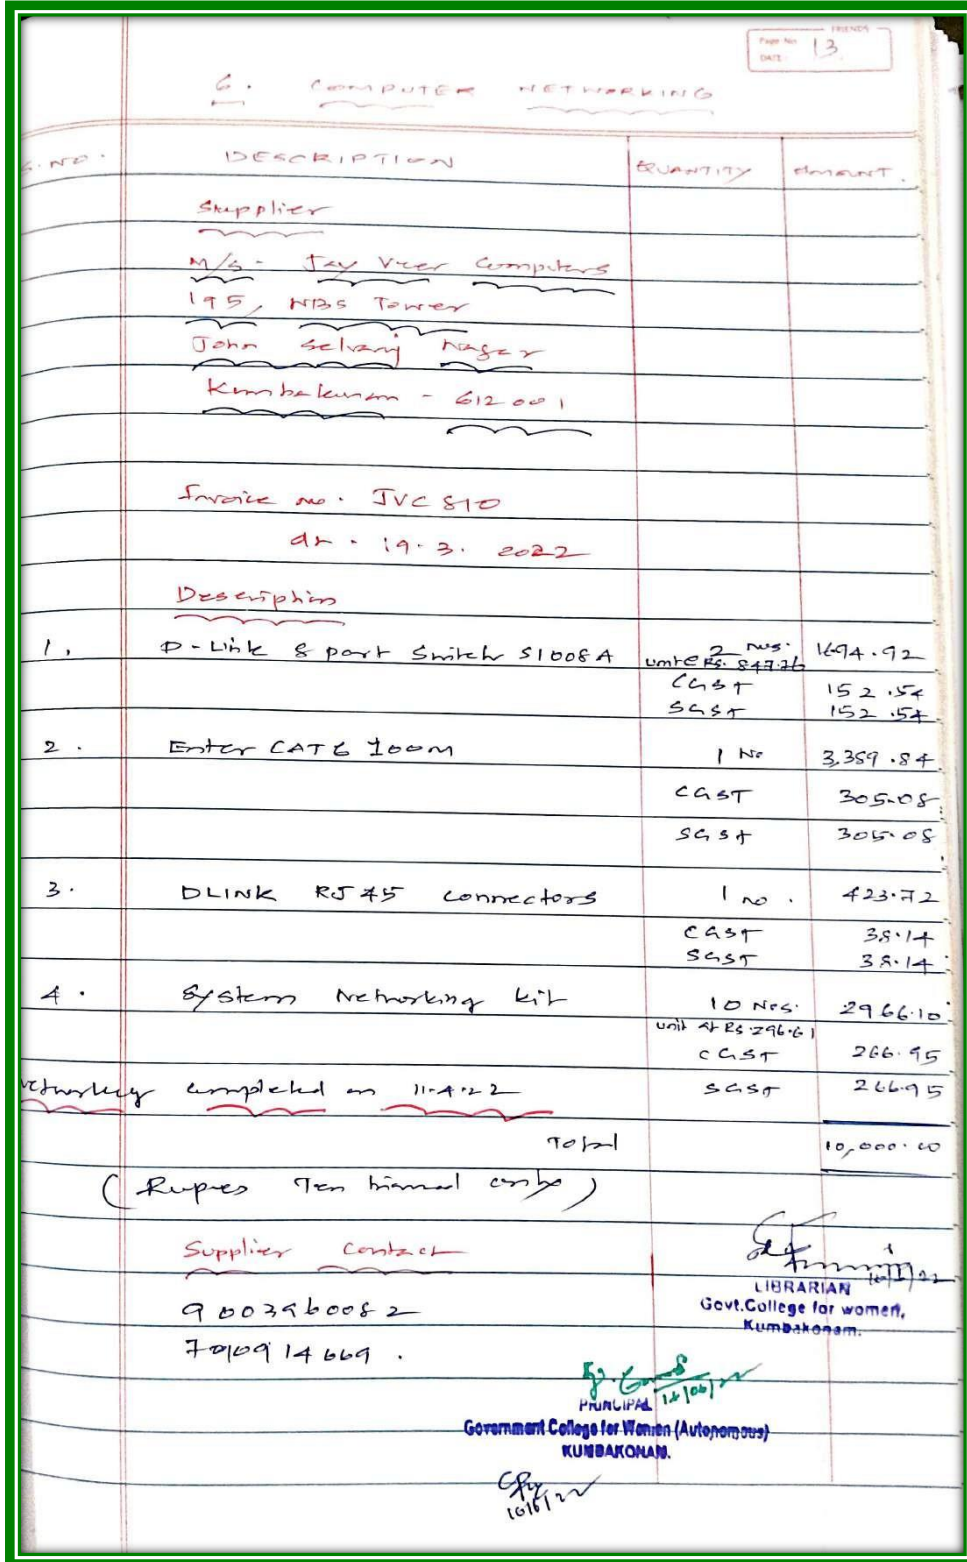 FRIENDS
Page No. 13
DATE:
6. COMPUTER NETWORKING
S.NO. DESCRIPTION QUANTITY AMOUNT.
Supplier
M/s - Jay Veer Computers
195, NBS Tower
John Selvaraj Nagar
Kumbakonam - 612 001
Invoice no. JVC 810
dt. 19.3.2022
Description
1. D-Link 8 port Switch S1008A 2 Nos. 1694.92
unit @ Rs. 847.76
CGST 152.54
SGST 152.54
2. Enter CAT 6 100M 1 No 3,389.84
CGST 305.08
SGST 305.08
3. DLINK RJ 45 connectors 1 no. 423.72
CGST 38.14
SGST 38.14
4. System Networking kit 10 Nos. 2966.10
unit at Rs. 296.61
CGST 266.95
Networking completed on 11.4.22 SGST 266.95
Total 10,000.00
(Rupees Ten thousand only)
Supplier Contact
LIBRARIAN
Govt.College for women,
Kumbakonam.
9003960082
7010914669.
PRINCIPAL
Government College for Women (Autonomous)
KUMBAKONAM.